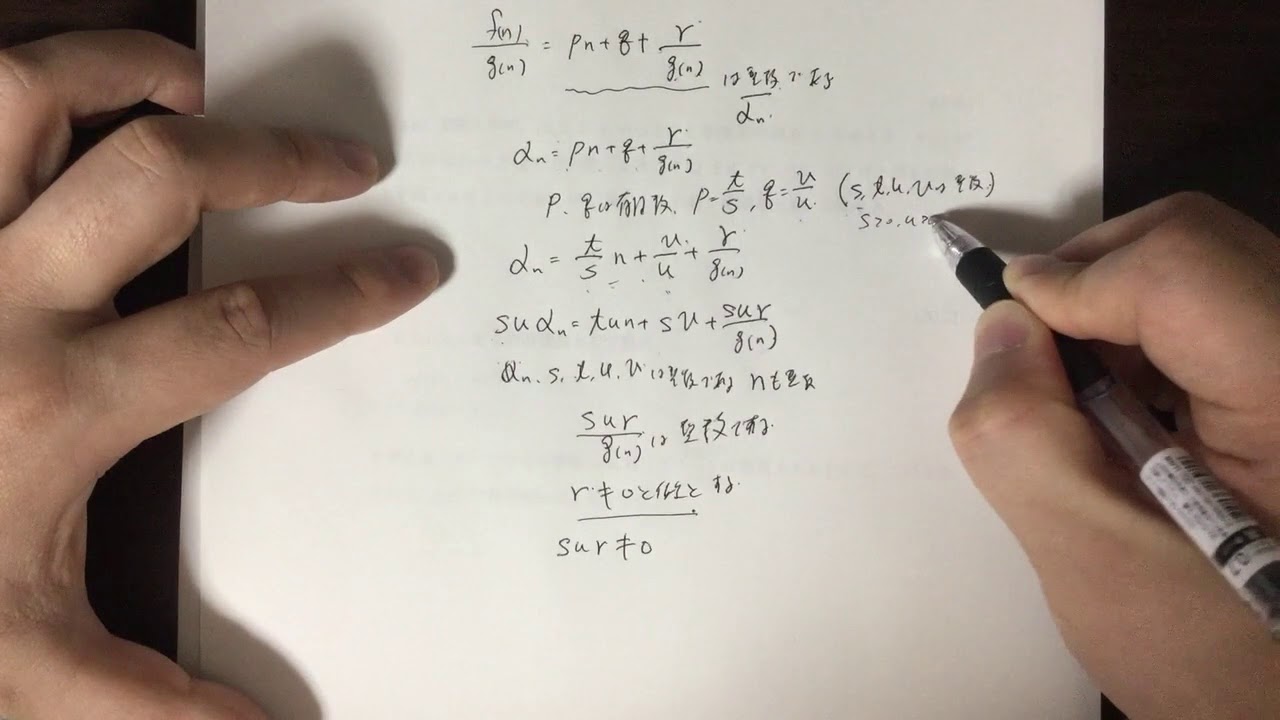 f(n)/g(n) = pn+q+ r/g(n) は整数である
αn
αn = pn+q+ r/g(n)
p、qは有理数、p= t/s , q= v/u (s, t, u, vは整数)
s>0, u>
αn = t/s n+ v/u + r/g(n)
suαn = tun + sv + sur/g(n)
αn、s、t、u、vは整数である nも整数
sur/g(n) は整数である
r≠0と仮定する
sur≠0